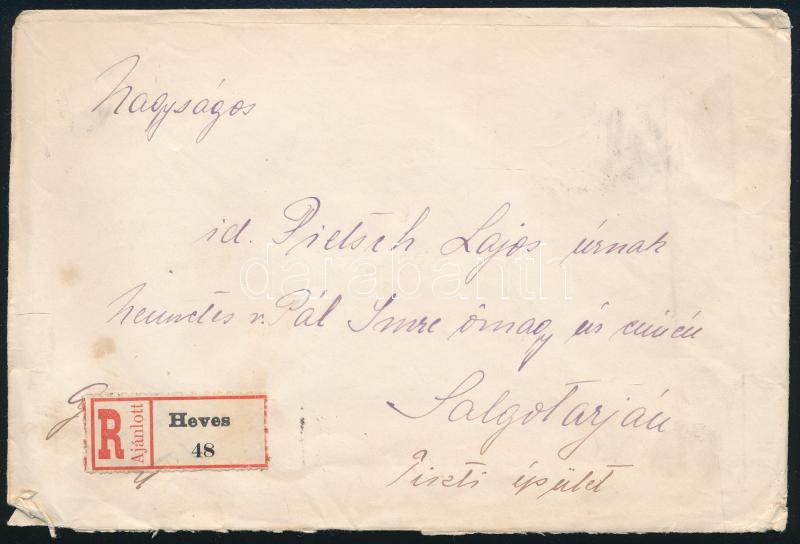 Nagyságos
id. Pietsch Lajos úrnak
Nemzetes v. Pál Imre őnagy úr címén
Salgótarján
Tiszti épület
R
Ajánlott
Heves
48
darabanth